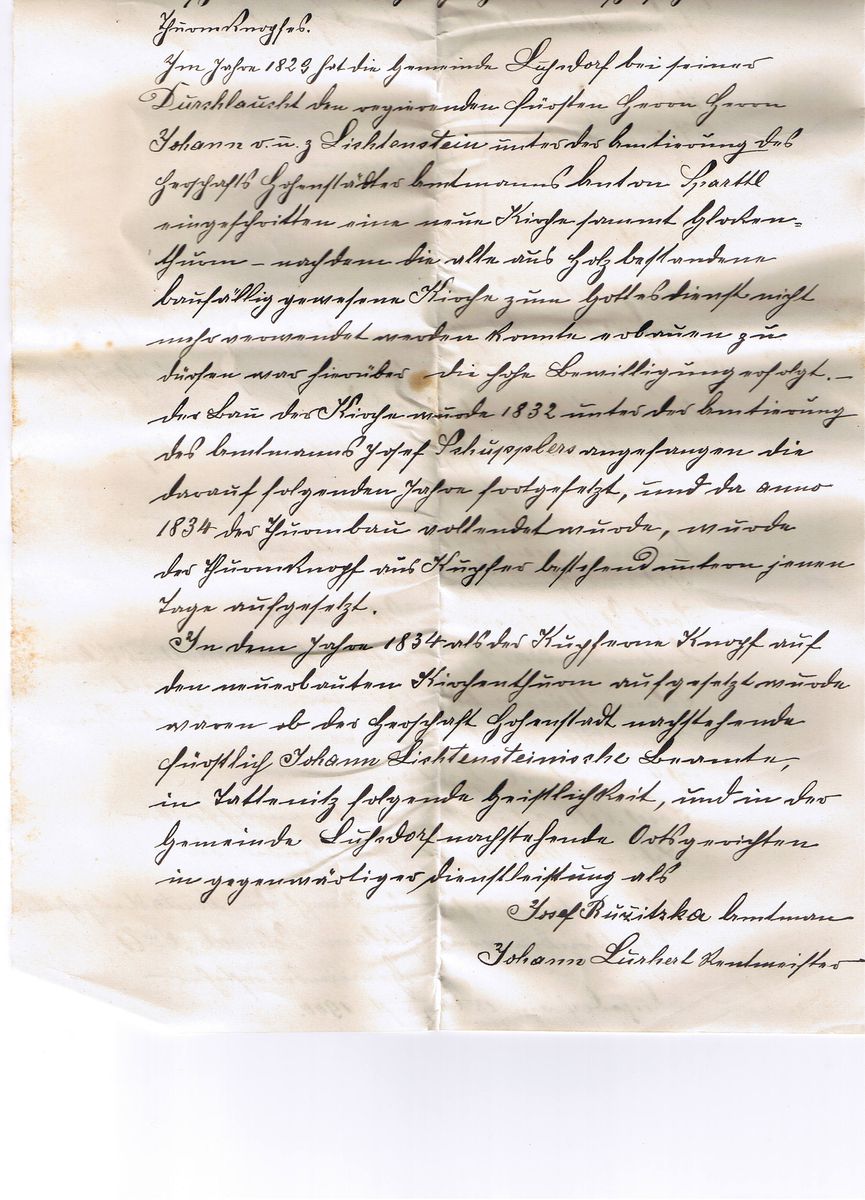 Thurmknopfes.
Im Jahre 1829 hat die Gemeinde Luhsdorf bei seiner
Durchlaucht den regierenden Fürsten Herrn Herrn
Johann v. u. z Lichtenstein unter der Amtierung des
Herschafts Hohenstädter Amtmanns Anton
eingeschritten eine neue Kirche sammt Glocken-
thurm – nachdem die alte aus Holz bestandene
baufällig gewesene Kirche zum Gottesdienst nicht
mehr verwendet werden konnte erbauen zu
dürfen war hierüber die hohe Bewilligung erfolgt. –
der Bau der Kirche wurde 1832 unter der Amtierung
des Amtmanns Josef Schupplers angefangen die
darauf folgenden Jahre fortgesetzt, und da anno
1834 der Thurmbau vollendet wurde, wurde
der Thurmknopf aus Kupfer bestehend untern jenen
Tage aufgesetzt.
In dem Jahre 1834 als der Kupferne Knopf auf
den neuerbauten Kirchenthurm aufgesetzt wurde
waren ob der Herschaft Hohenstadt nachstehende
fürstlich Johann Lichtensteinische Beamte,
in Tattenitz folgende Geistlichkeit, und in der
Gemeinde Luhsdorf nachstehende Ortsgerichten
in gegenwärtiger dienstleistung als
Josef Ružitzka Amtman
Johann Rentmeister